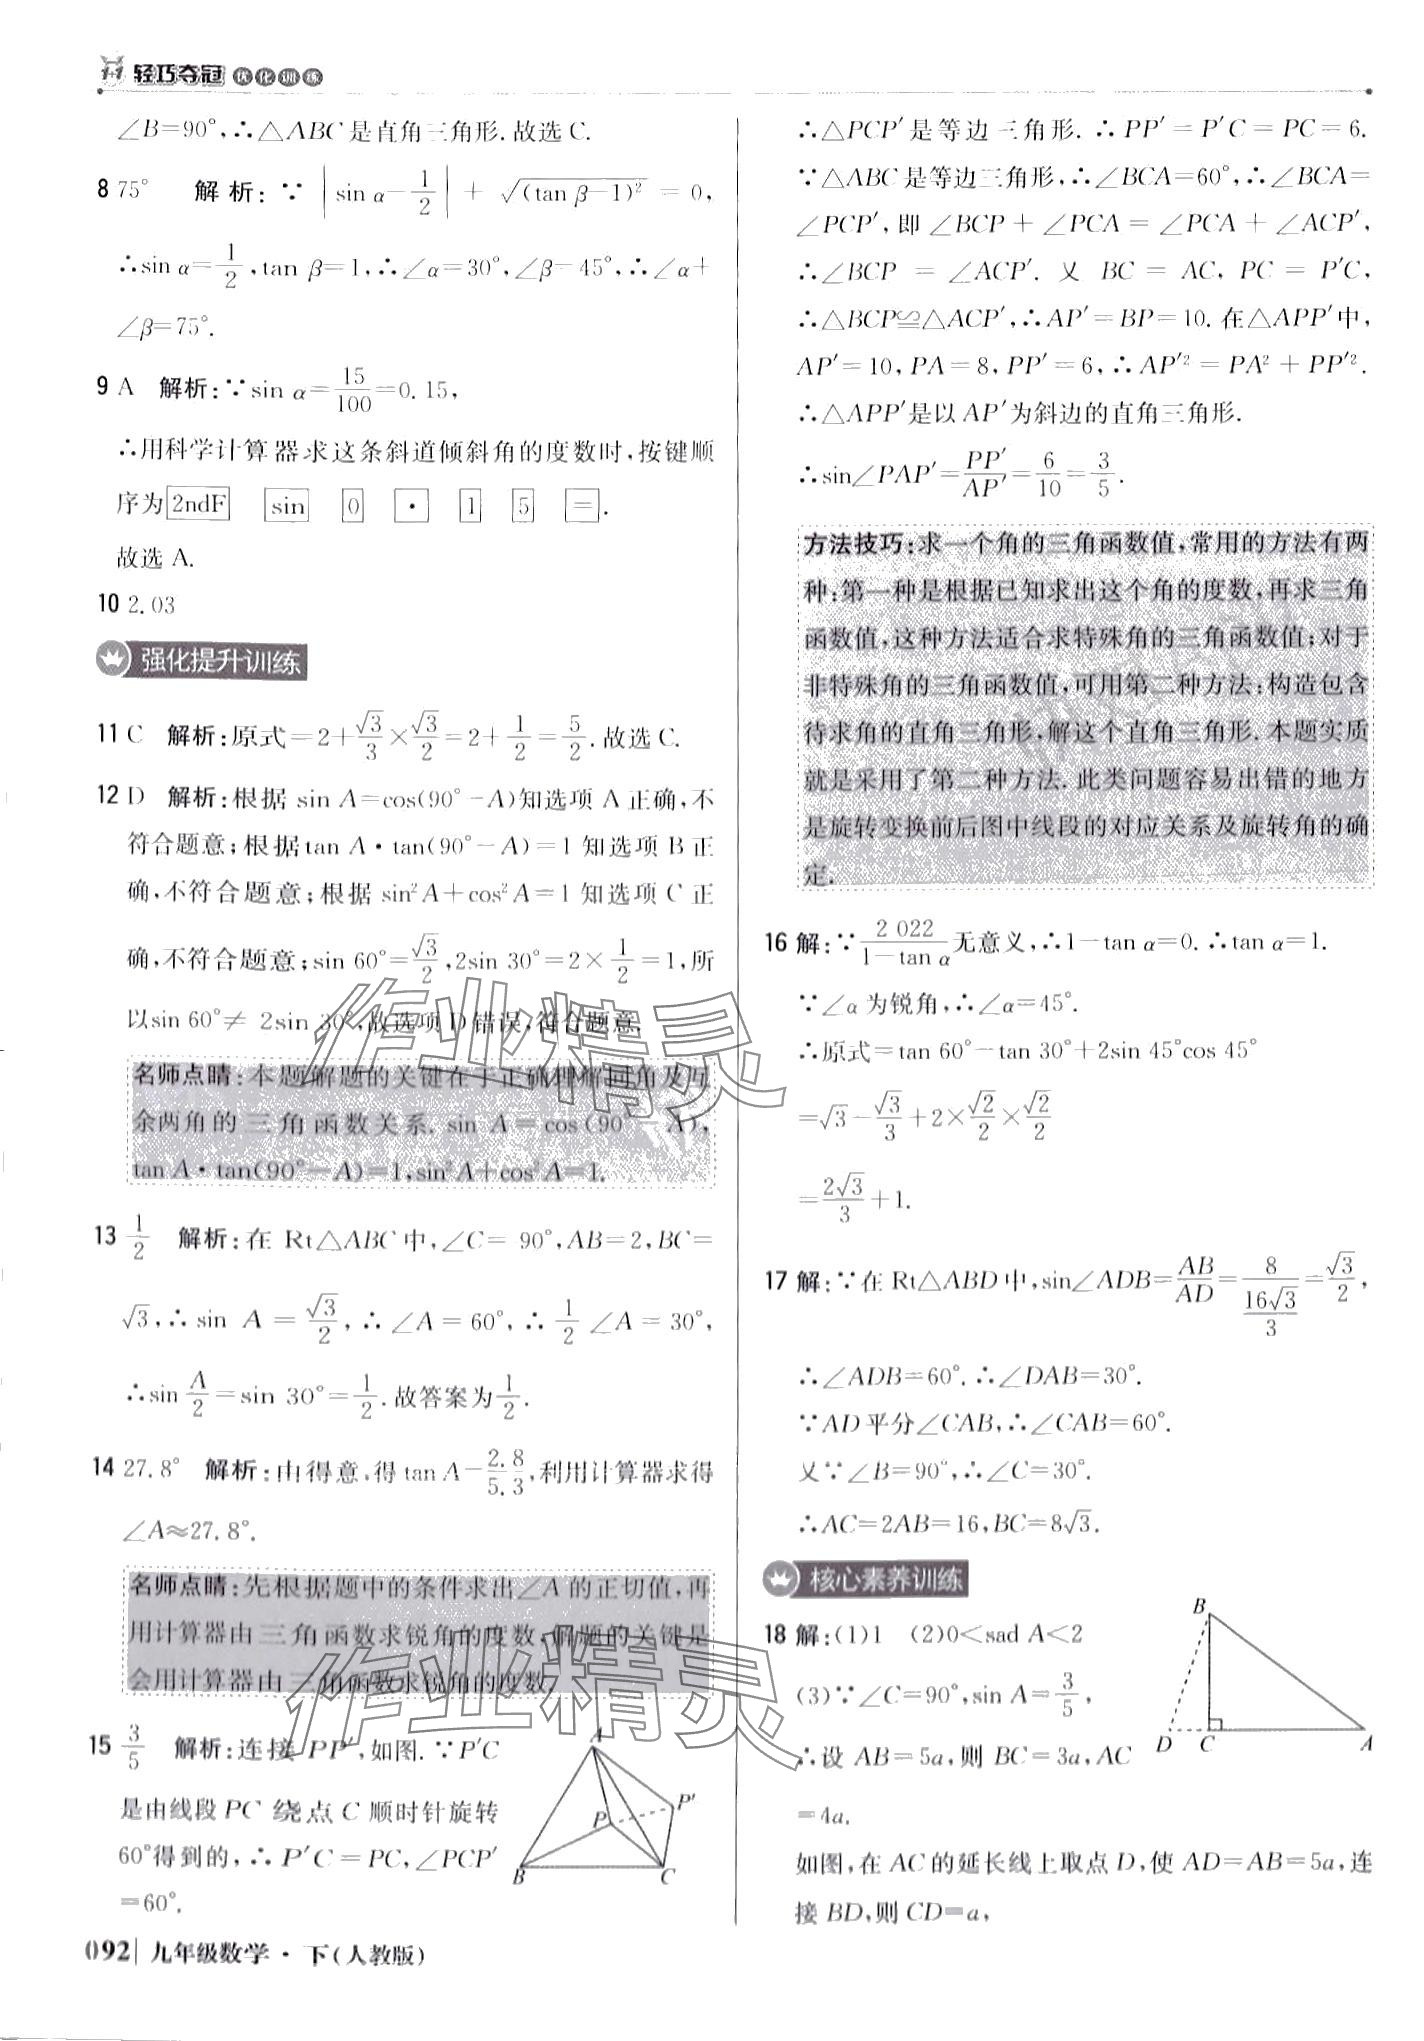 1+1 轻巧夺冠 优化训练
∠B=90°,∴△ABC是直角三角形.故选C.
8 75° 解析:∵|sin α-1/2|+√(tan β-1)²=0,
∴sin α=1/2,tan β=1,∴∠α=30°,∠β=45°,∴∠α+
∠β=75°.
9 A 解析:∵sin α=15/100=0.15,
∴用科学计算器求这条斜道倾斜角的度数时,按键顺
序为 2ndF sin 0 · 1 5 = .
故选 A.
10 2.03
强化提升训练
11 C 解析:原式=2+√3/3×√3/2=2+1/2=5/2.故选C.
12 D 解析:根据 sin A=cos(90°-A)知选项 A 正确,不
符合题意;根据tan A·tan(90°-A)=1知选项B正
确,不符合题意;根据 sin²A+cos²A=1知选项 C 正
确,不符合题意;sin 60°=√3/2,2sin 30°=2×1/2=1,所
以sin 60°≠2sin 30°,故选项D错误,符合题意.
名师点睛:本题解题的关键在于正确理解同角及互
余两角的三角函数关系.sin A=cos(90°-A),
tan A·tan(90°-A)=1,sin²A+cos²A=1.
13 1/2 解析:在 Rt△ABC 中,∠C=90°,AB=2,BC=
√3,∴sin A=√3/2,∴∠A=60°,∴1/2∠A=30°,
∴sin A/2=sin 30°=1/2.故答案为1/2.
14 27.8° 解析:由得意,得tan A-2.8/5.3,利用计算器求得
∠A≈27.8°.
名师点睛:先根据题中的条件求出∠A的正切值,再
用计算器由三角函数求锐角的度数.解题的关键是
会用计算器由三角函数求锐角的度数
15 3/5 解析:连接 PP′,如图.∵P′C
是由线段 PC 绕点 C 顺时针旋转
60°得到的,∴P′C=PC,∠PCP′
=60°.
A
P
P′
B
C
092 九年级数学·下(人教版)
∴△PCP′是等边三角形.∴PP′=P′C=PC=6.
∵△ABC是等边三角形,∴∠BCA=60°,∴∠BCA=
∠PCP′,即∠BCP+∠PCA=∠PCA+∠ACP′,
∴∠BCP=∠ACP′.又 BC=AC,PC=P′C,
∴△BCP≌△ACP′,∴AP′=BP=10.在△APP′中,
AP′=10,PA=8,PP′=6,∴AP′²=PA²+PP′².
∴△APP′是以AP′为斜边的直角三角形.
∴sin∠PAP′=PP′/AP′=6/10=3/5.
方法技巧:求一个角的三角函数值,常用的方法有两
种:第一种是根据已知求出这个角的度数,再求三角
函数值,这种方法适合求特殊角的三角函数值;对于
非特殊角的三角函数值,可用第二种方法:构造包含
待求角的直角三角形,解这个直角三角形.本题实质
就是采用了第二种方法.此类问题容易出错的地方
是旋转变换前后图中线段的对应关系及旋转角的确
定.
16 解:∵2 022/(1-tan α)无意义,∴1-tan α=0.∴tan α=1.
∵∠α为锐角,∴∠α=45°.
∴原式=tan 60°-tan 30°+2sin 45°cos 45°
=√3-√3/3+2×√2/2×√2/2
=2√3/3+1.
17 解:∵在 Rt△ABD中,sin∠ADB=AB/AD=8/(16√3/3)=√3/2,
∴∠ADB=60°.∴∠DAB=30°.
∵AD平分∠CAB,∴∠CAB=60°.
又∵∠B=90°,∴∠C=30°.
∴AC=2AB=16,BC=8√3.
核心素养训练
18 解:(1)1 (2)0<sad A<2
(3)∵∠C=90°,sin A=3/5,
∴设 AB=5a,则 BC=3a,AC
=4a.
B
D
C
A
如图,在AC的延长线上取点D,使 AD=AB=5a,连
接 BD,则 CD=a,
作业精灵
作业精灵